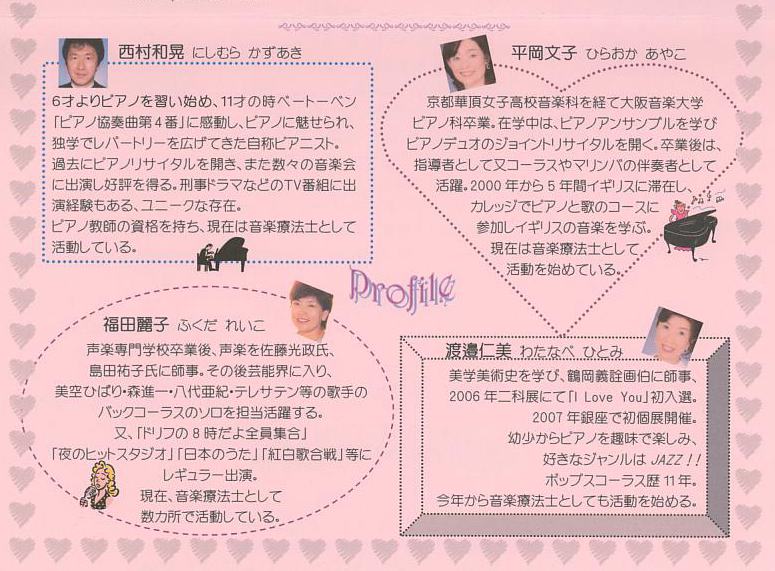 西村和晃 にしむら かずあき
6才よりピアノを習い始め、11才の時ベートーベン
「ピアノ協奏曲第4番」に感動し、ピアノに魅せられ、
独学でレパートリーを広げてきた自称ピアニスト。
過去にピアノリサイタルを開き、また数々の音楽会
に出演し好評を得る。刑事ドラマなどのTV番組に出
演経験もある、ユニークな存在。
ピアノ教師の資格を持ち、現在は音楽療法士として
活動している。
平岡文子 ひらおか あやこ
京都華頂女子高校音楽科を経て大阪音楽大学
ピアノ科卒業。在学中は、ピアノアンサンブルを学び
ピアノデュオのジョイントリサイタルを開く。卒業後は、
指導者として又コーラスやマリンバの伴奏者として
活躍。2000年から5年間イギリスに滞在し、
カレッジでピアノと歌のコースに
参加しイギリスの音楽を学ぶ。
現在は音楽療法士として
活動を始めている。
Profile
福田麗子 ふくだ れいこ
声楽専門学校卒業後、声楽を佐藤光政氏、
島田祐子氏に師事。その後芸能界に入り、
美空ひばり・森進一・八代亜紀・テレサテン等の歌手の
バックコーラスのソロを担当活躍する。
又、「ドリフの8時だよ全員集合」
「夜のヒットスタジオ」「日本のうた」「紅白歌合戦」等に
レギュラー出演。
現在、音楽療法士として
数カ所で活動している。
渡邉仁美 わたなべ ひとみ
美学美術史を学び、鶴岡義詮画伯に師事、
2006年二科展にて「I Love You」初入選。
2007年銀座で初個展開催。
幼少からピアノを趣味で楽しみ、
好きなジャンルは JAZZ!!
ポップスコーラス歴11年。
今年から音楽療法士としても活動を始める。